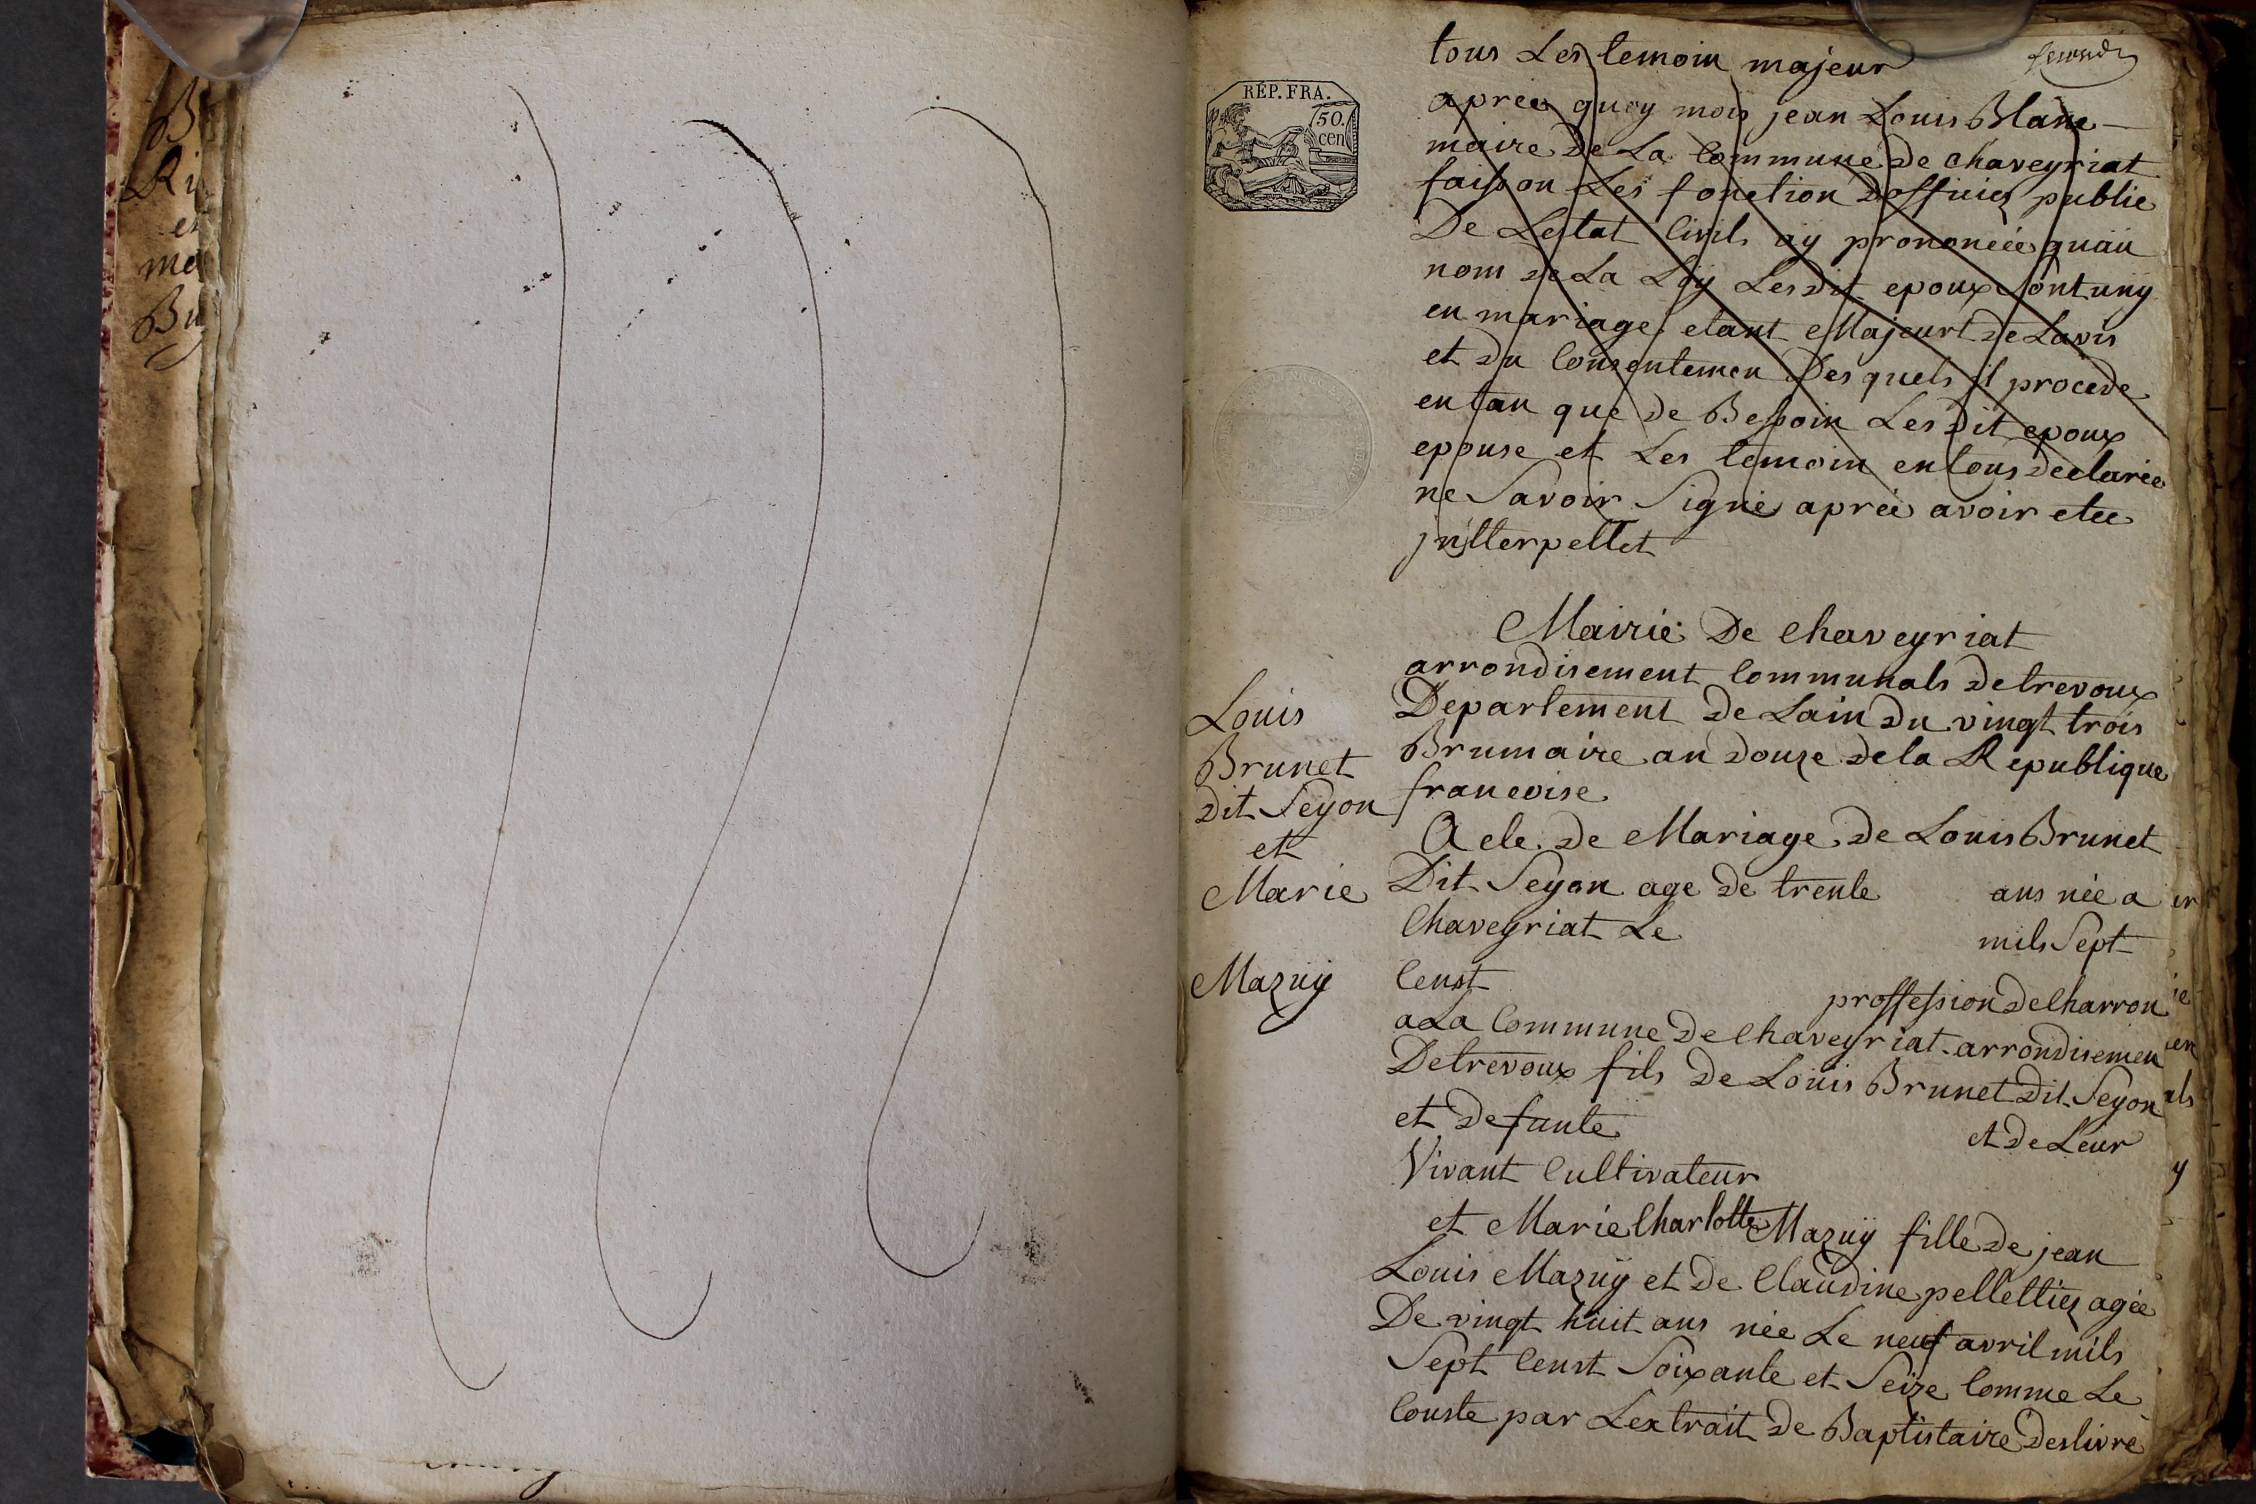 B
Ri
et
ma
Bu
tous Les temoin majeur
RÉP. FRA.
50.
cen
apree quoy mois jean Louis Blanc
maire de La Commune de chaveyriat
faisson Les fonction Dofficier public
De Lestat Civils ay prononcée quau
nom de La Loy Les Dit epoux Sont uny
en mariage etant Majeurt de Lavis
et du Consentemen Des quels il procede
en tan que de Besoin Les Dit epoux
epouse et Les temoin en tous declarée
ne Savoir Signé aprée avoir etée
jnterpellet
Mairie De chaveyriat
arrondisement Communals de trevoux
Departement De Lain Du vingt trois
Brumaire an douze de la Republique
francoise
Louis
Brunet
dit Seyon
et
Marie
Mazuy
Acte de Mariage de Louis Brunet
Dit Seyon age De trente ans née a
Chaveyriat Le mils Sept
Censt
proffession de Charron
a La Commune De Chaveyriat arrondisemen
De trevoux fils De Louis Brunet Dit Seyon
et De funte et de Leur
Vivant Cultivateur
et Marie Charlotte Mazuy fille de jean
Louis Mazuy et de Claudine pellettier agée
De vingt huit ans née Le neuf avril mils
Sept Censt Soixante et Seize Comme Le
Conste par Lextrait De Baptistaire Deslivré